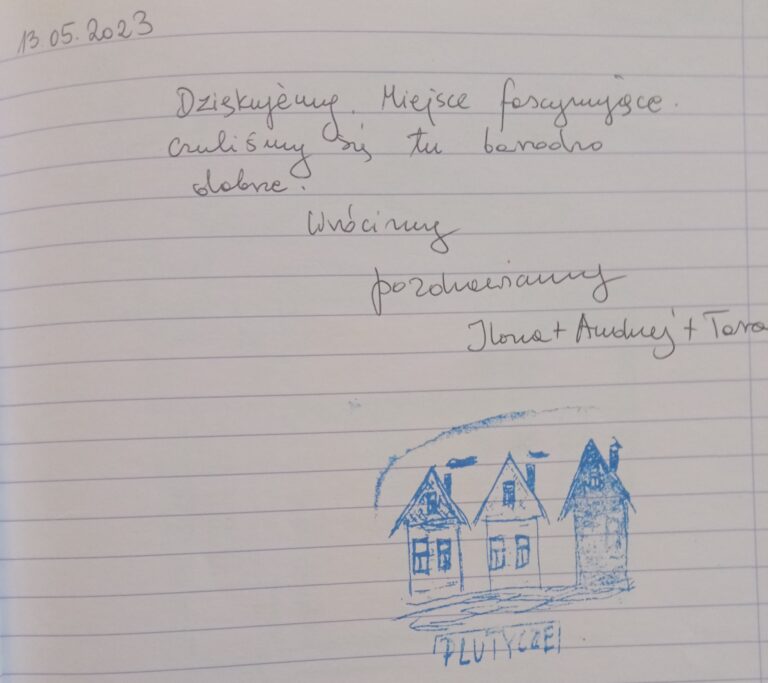 13.05.2023
Dziękujemy. Miejsce fascynujące.
czuliśmy się tu bardzo
dobrze.
Wrócimy
pozdrawiamy
Ilona + Andrzej + Tara
PLUTYCZE